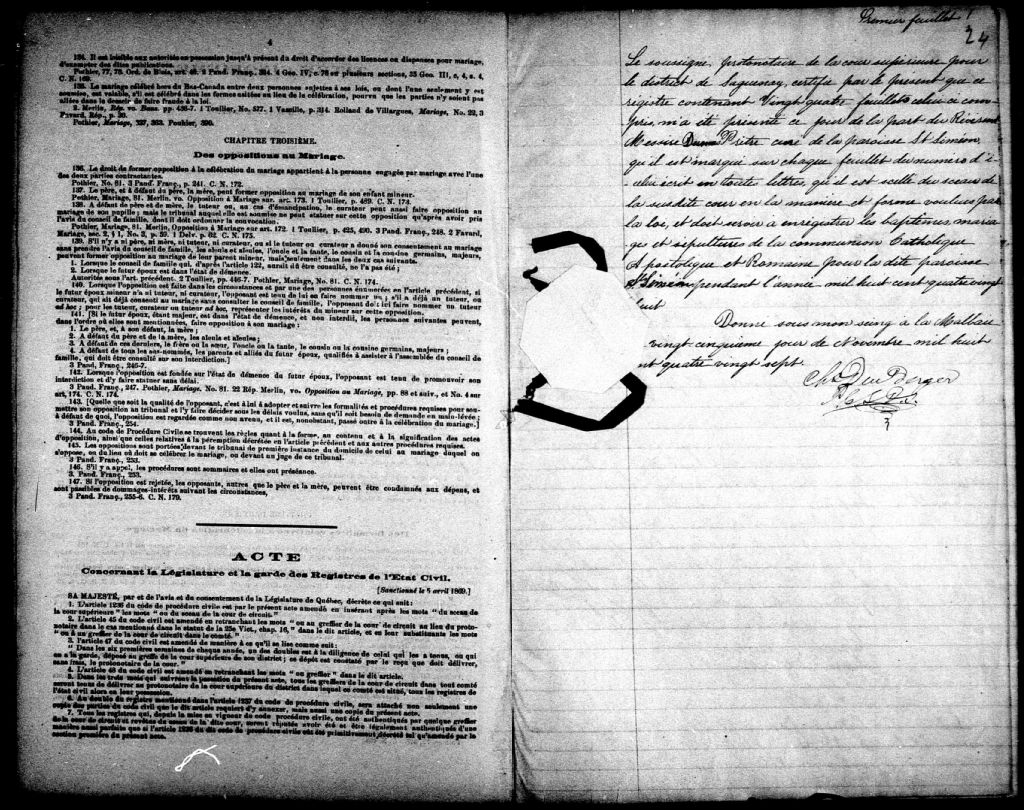 4
134. Il est loisible aux autorités en possession jusqu'à présent du droit d'accorder des licences ou dispenses pour mariage,
d'exempter des dites publications.
Pothier, 77, 78. Ord. de Blois, art. 40. 2 Pand. Franç.
C. N. 169.
135. Le mariage célébré hors du Bas-Canada entre deux personnes sujettes à ses lois, ou dont l'une seulement y est
soumise, est valable, s'il est célébré dans les formes usitées au lieu de la célébration, pourvu que les parties n'y soient pas
allées dans le dessein de faire fraude à la loi.
2. Merlin, Rép. vo. Bans. pp. 436-7. 1 Toullier, No. 577. 1 Vazeille, p. 314. Rolland de Villargues, Mariage, No. 22, 3
Favard, Rép. p.
Pothier, Mariage, 327, 363.
CHAPITRE TROISIÈME.
Des oppositions au Mariage.
136. Le droit de former opposition à la célébration du mariage appartient à la personne engagée par mariage avec l'une
des deux parties contractantes.
Pothier, No. 81. 3 Pand. Franç., p. 241. C. N. 172.
137. Le père, et à défaut du père, la mère, peut former opposition au mariage de son enfant mineur.
Pothier, Mariage, 81. Merlin, vo. Opposition à Mariage sur art. 173. 1 Toullier, p. 489. C. N. 174.
138. A défaut de père et de mère, le tuteur ou, au cas d'émancipation, le curateur peut aussi faire opposition au
mariage de son pupille ; mais le tribunal auquel elle est soumise ne peut statuer sur cette opposition qu'après avoir pris
l'avis du conseil de famille, dont il doit ordonner la convocation.
Pothier, Mariage, 81. Merlin, Opposition à Mariage sur art. 172. 1 Toullier, p. 425, 490. 3 Pand. Franç., 248. 2 Favard,
Mariage, sec. 2, § 1, No. 2, p. 59. 1 Delv. p. 62. C. N. 175.
139. S'il n'y a ni père, ni mère, ni tuteur, ni curateur, ou si le tuteur ou curateur a donné son consentement au mariage
sans prendre l'avis du conseil de famille, les aïeuls et aïeules, l'oncle et la tante, le cousin et la cousine germains, majeurs,
peuvent former opposition au mariage de leur parent mineur, mais seulement dans les deux cas suivants.
1. Lorsque le conseil de famille qui, d'après l'article 122, aurait dû être consulté, ne l'a pas été ;
2. Lorsque le futur époux est dans l'état de démence.
Autorités sous l'art. précédent. 2 Toullier, pp. 466-7. Pothier, Mariage, No. 81. C. N. 174.
140. Lorsque l'opposition est faite dans les circonstances et par une des personnes énoncées en l'article précédent, si
le futur époux mineur n'a ni tuteur, ni curateur, l'opposant est tenu de lui en faire nommer un ; s'il a déjà un tuteur, ou
curateur, qui ait déjà consenti au mariage sans consulter le conseil de famille, l'opposant doit lui faire nommer un tuteur
ad hoc ; pour les tuteur, curateur ou tuteur ad hoc, représenter les intérêts du mineur sur cette opposition.
141. [Si le futur époux, étant majeur, est dans l'état de démence, et non interdit, les personnes suivantes peuvent,
dans l'ordre où elles sont mentionnées, faire opposition à son mariage :
1. Le père, et, à son défaut, la mère ;
2. A défaut du père et de la mère, les aïeuls et aïeules ;
3. A défaut de ces derniers, le frère ou la sœur, l'oncle ou la tante, le cousin ou la cousine germains, majeurs ;
4. A défaut de tous les sus-nommés, les parents et alliés du futur époux, qualifiés à assister à l'assemblée du conseil de
famille, qui doit être consulté sur son interdiction.]
3 Pand. Franç., 246-7.
142. Lorsque l'opposition est fondée sur l'état de démence du futur époux, l'opposant est tenu de promouvoir son
interdiction et d'y faire statuer sans délai.
3 Pand. Franç., 247. Pothier, Mariage, No. 81. 22 Rép. Merlin, vo. Opposition au Mariage, pp. 88 et suiv., et No. 4 sur
art. 174. C. N. 174.
143. [Quelle que soit la qualité de l'opposant, c'est à lui à adopter et suivre les formalités et procédures requises pour sou-
mettre son opposition au tribunal et l'y faire décider sous les délais voulus, sans qu'il soit besoin de demande en main-levée ;
à défaut de quoi, l'opposition est regardée comme non avenue, et il est, nonobstant, passé outre à la célébration du mariage.]
3 Pand. Franç., 254.
144. Au code de Procédure Civile se trouvent les règles quant à la forme, au contenu et à la signification des actes
d'opposition, ainsi que celles relatives à la péremption décrétée en l'article précédent et aux autres procédures requises.
145. Les oppositions sont portées devant le tribunal de première instance du domicile de celui au mariage duquel on
s'oppose, ou du lieu où doit se célébrer le mariage, ou devant un juge de ce tribunal.
3 Pand. Franç., 253.
146. S'il y a appel, les procédures sont sommaires et elles ont préséance.
3 Pand. Franç., 253.
147. Si l'opposition est rejetée, les opposants, autres que le père et la mère, peuvent être condamnés aux dépens, et
sont passibles de dommages-intérêts suivant les circonstances,
3 Pand. Franç., 255-6. C. N. 179.
ACTE
Concernant la Législature et la garde des Registres de l'Etat Civil.
[Sanctionné le 5 avril 1869.]
SA MAJESTÉ, par et de l'avis et du consentement de la Législature de Québec, décrète ce qui suit :
1. L'article 1236 du code de procédure civile est par le présent acte amendé en insérant après les mots " du sceau de
la cour supérieure " les mots " ou du sceau de la cour de circuit."
2. L'article 45 du code civil est amendé en retranchant les mots " ou au greffier de la cour de circuit au lieu du proto-
notaire dans le cas mentionné dans le statut de la 25e Vict., chap. 16, " dans le dit article, et en leur substituant les mots
" ou à un greffier de la cour de circuit dans le comté."
3. l'article 47 du code civil est amendé de manière à ce qu'il se lise comme suit :
" Dans les six premières semaines de chaque année, un des doubles est à la diligence de celui qui les a tenus, ou qui
en a la garde, déposé au greffe de la cour supérieure de son district ; ce dépôt est constaté par le reçu que doit délivrer,
sans frais, le protonotaire de la cour."
4. L'article 48 du code civil est amendé en retranchant les mots " ou greffier " dans le dit article.
5. Dans les trois mois qui suivront la passation du présent acte, tous les greffiers de la cour de circuit dans tout comté
seront tenus de délivrer au protonotaire de la cour supérieure du district dans lequel ce comté est situé, tous les registres de
l'état civil alors en leur possession.
6. Au double du registre mentionné dans l'article 1237 du code de procédure civile, sera attaché non seulement une
copie des parties du code civil que le dit article requiert d'y annexer, mais aussi une copie du présent acte.
7. Tous les registres qui, depuis la mise en vigueur du code de procédure civile, ont été authentiqués par quelque greffier
de la cour de circuit et revêtus du sceau de la dite cour, seront réputés avoir été et être légalement authentiqués d'une
manière aussi parfaite que si l'article 1236 du dit code de procédure civile eût été primitivement décrété tel qu'amendé par la
section première du présent acte.
Premier feuillet 1
24
Le soussigné, protonotaire de la cour supérieure pour
le district de Saguenay, certifie par le présent que ce
régistre contenant Vingt quatre feuillets celui-ci com-
pris, m'a été présenté ce jour de la part du Révérend
Messire Prêtre curé de la paroisse St Siméon,
qu'il est marqué sur chaque feuillet du numéro d'i-
celui écrit en toutes lettres, qu'il est scellé du sceau de
la susdite cour en la manière et forme voulues par
la loi, et doit servir à enregistrer les baptêmes maria
ges et sépultures de la communion Catholique
Apostolique et Romaine pour la dite paroisse
St Siméon pendant l'année mil huit cent quatre vingt
huit
Donné sous mon seing à la Malbaie
vingt-cinquième jour de Novembre mil huit
nt quatre vingt sept.
Chs Du Berger
P. C. S. D. S.